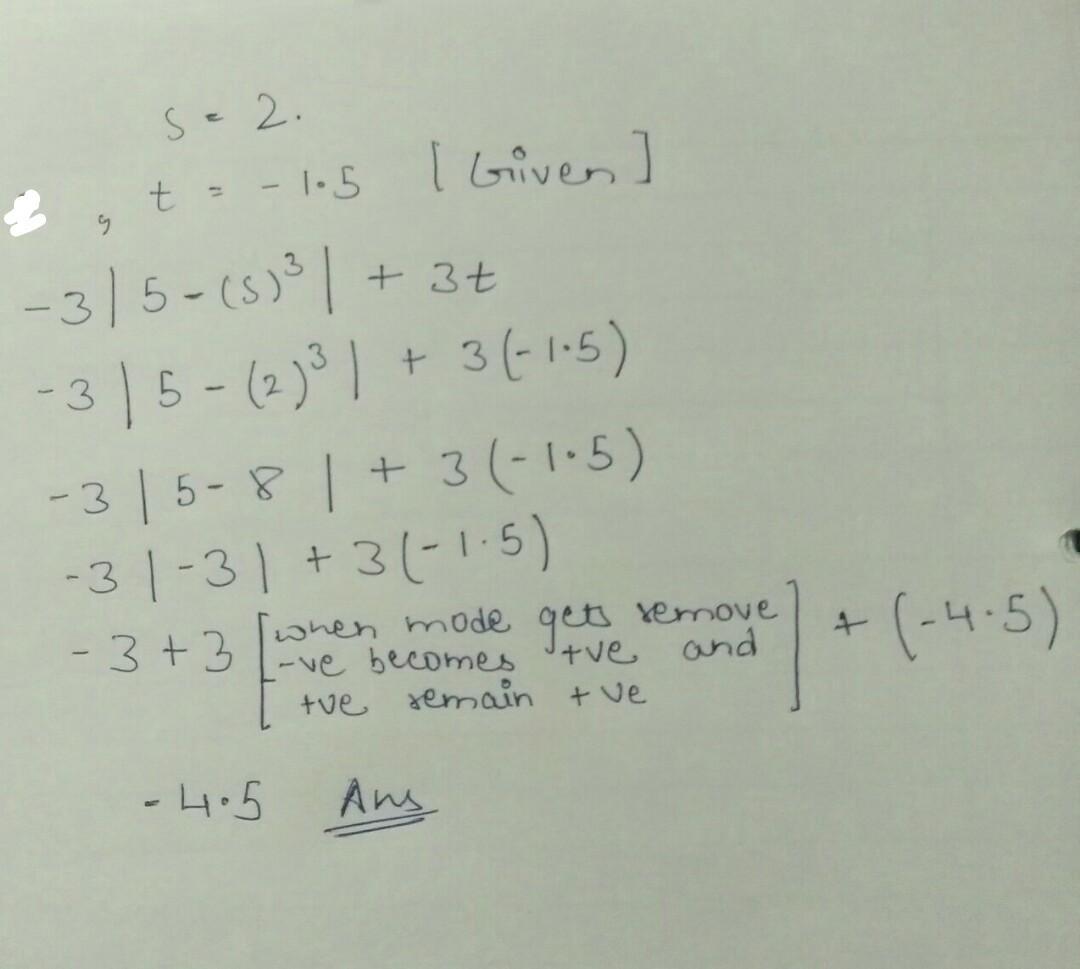 s = 2.
, t = -1.5 [Given]
-3|5-(s)³| + 3t
-3|5-(2)³| + 3(-1.5)
-3|5-8| + 3(-1.5)
-3|-3| + 3(-1.5)
-3+3 [when mode gets remove -ve becomes +ve and +ve remain +ve] + (-4.5)
-4.5 Ans